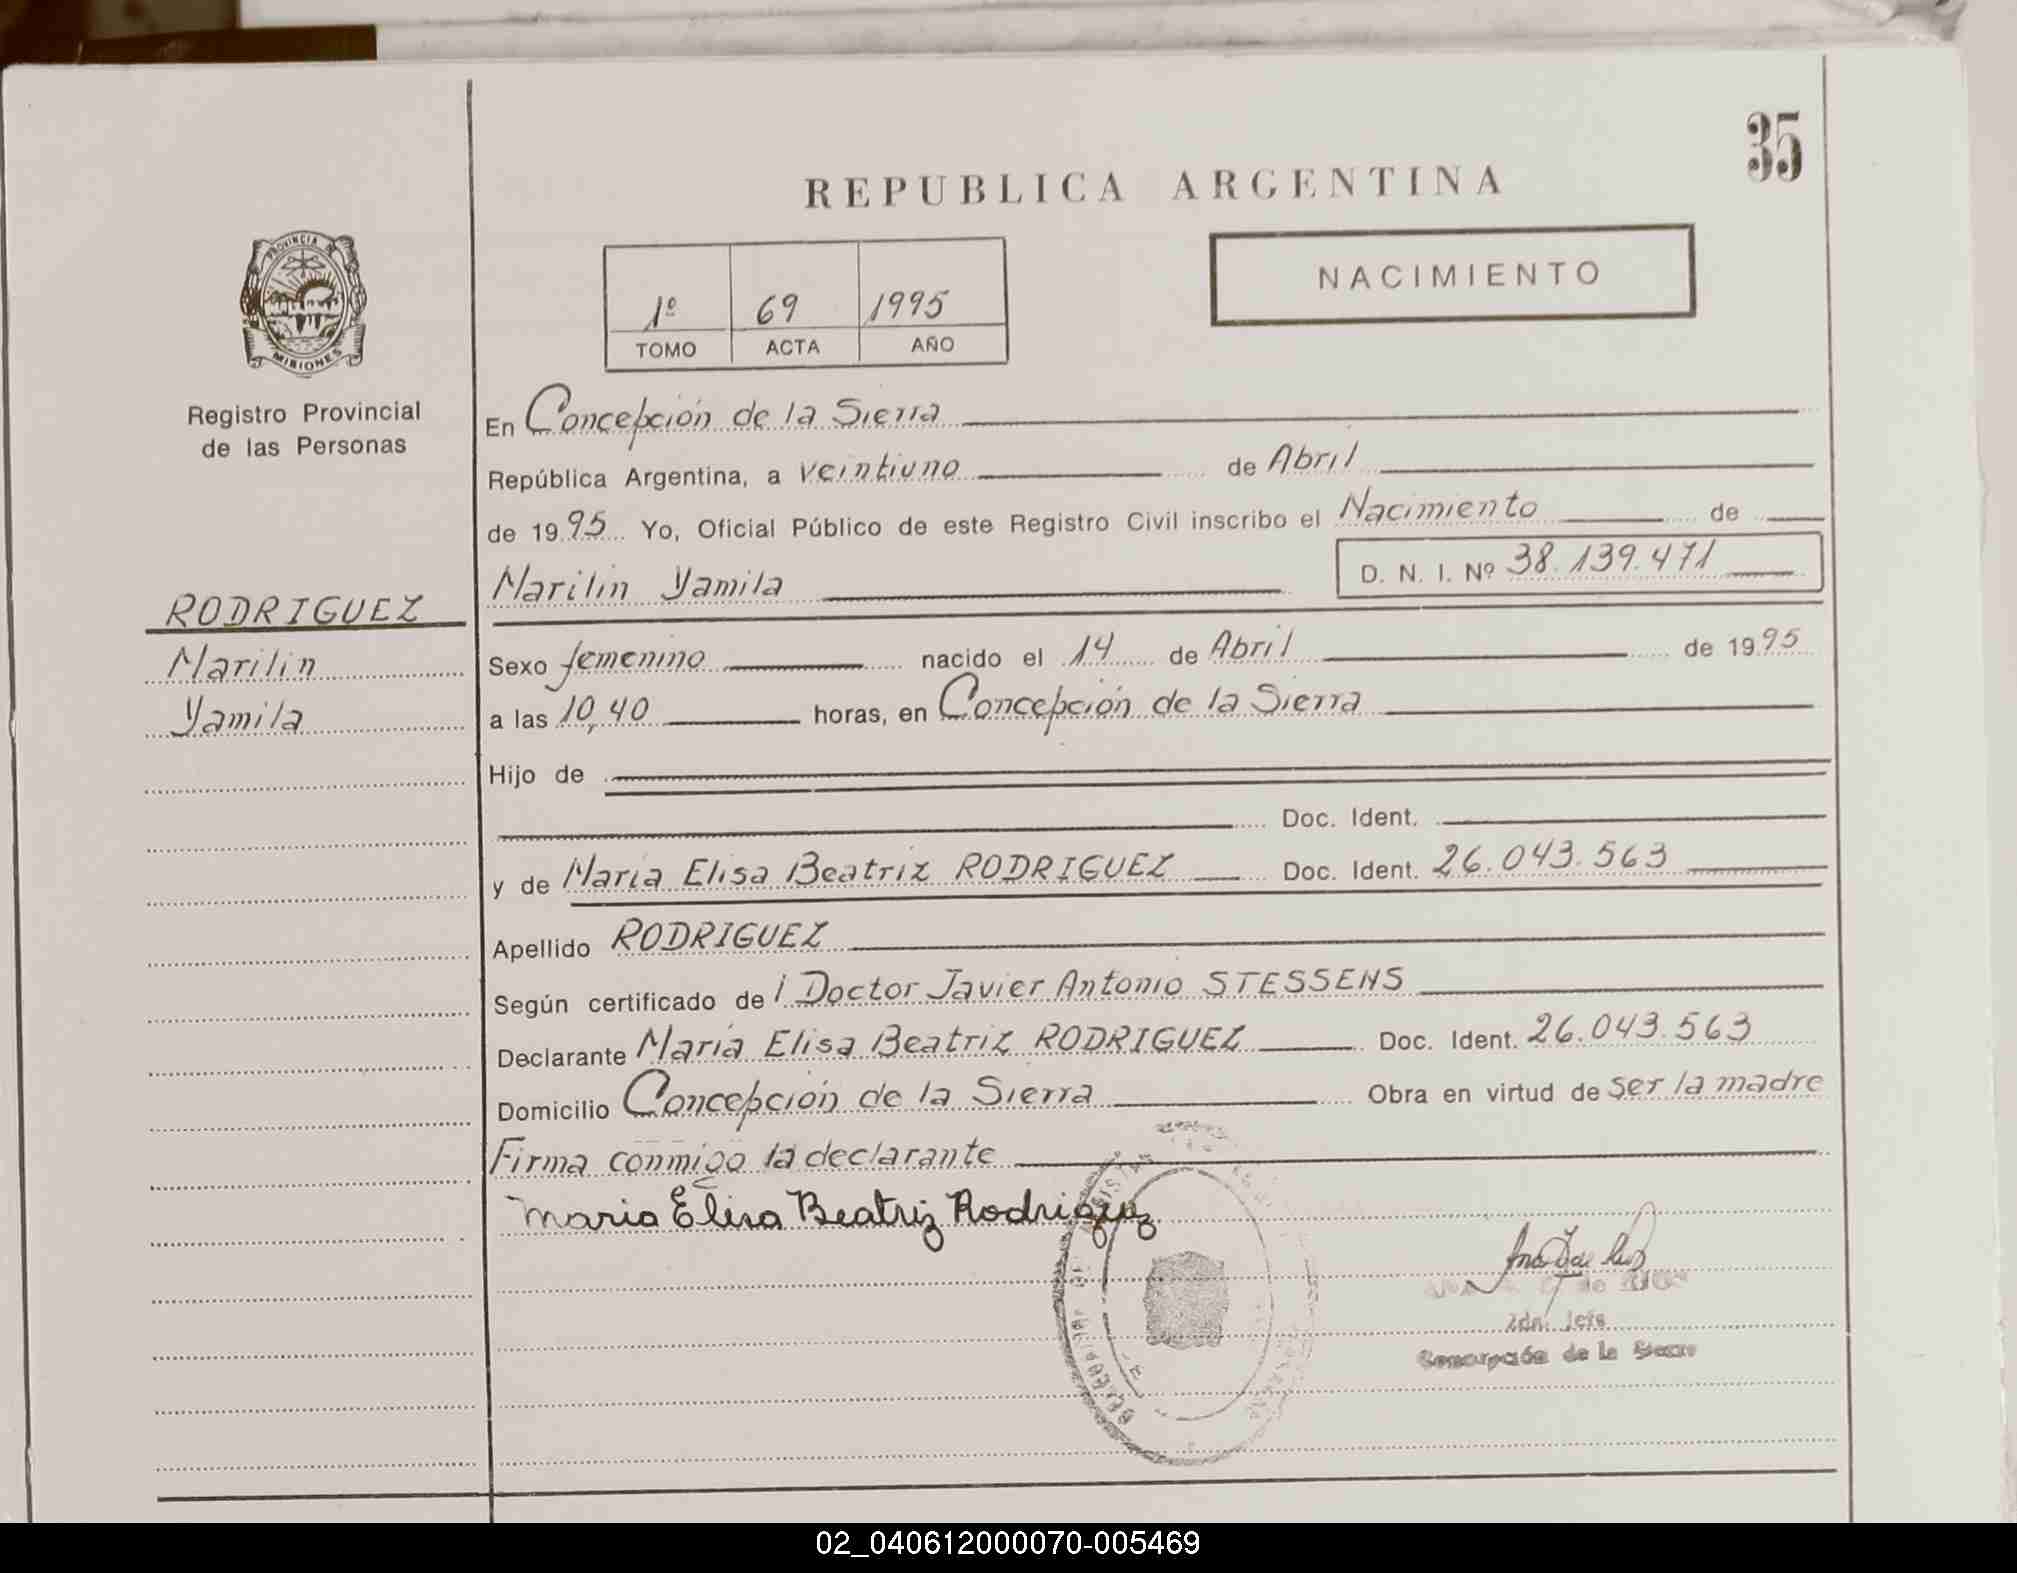 35
REPUBLICA ARGENTINA
PROVINCIA DE
MISIONES
Registro Provincial
de las Personas
1º 69 1995
TOMO ACTA AÑO
NACIMIENTO
En Concepción de la Sierra
República Argentina, a veintiuno de Abril
de 1995 Yo, Oficial Público de este Registro Civil inscribo el Nacimiento de
Marilin Yamila D. N. I. Nº 38.139.471
RODRIGUEZ
Marilin
Yamila
Sexo femenino nacido el 14 de Abril de 1995
a las 10,40 horas, en Concepción de la Sierra
Hijo de
Doc. Ident.
y de Maria Elisa Beatriz RODRIGUEZ Doc. Ident. 26.043.563
Apellido RODRIGUEZ
Según certificado de l Doctor Javier Antonio STESSENS
Declarante María Elisa Beatriz RODRIGUEZ Doc. Ident. 26.043.563
Domicilio Concepción de la Sierra Obra en virtud de ser la madre
Firma conmigo la declarante
Maria Elisa Beatriz Rodriguez
Concepción de la Sierra
02_040612000070-005469